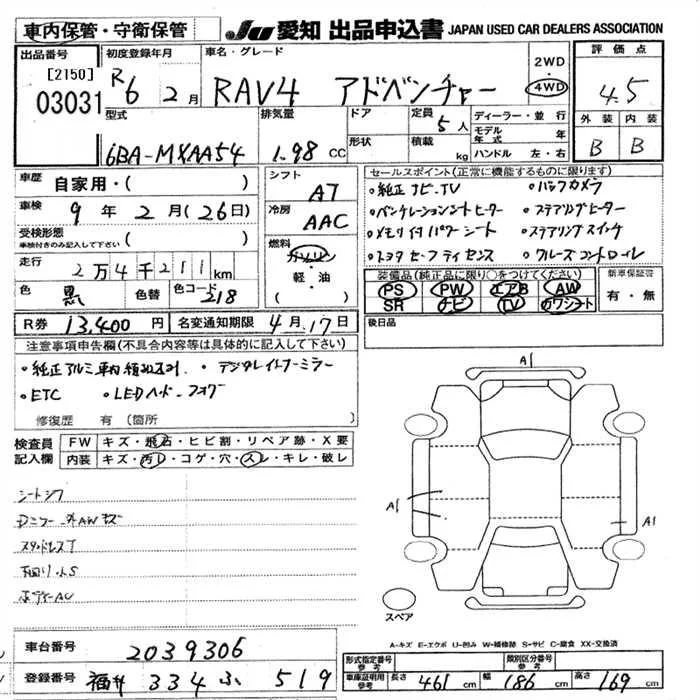 車内保管・守衛保管
JU 愛知 出品申込書 JAPAN USED CAR DEALERS ASSOCIATION
出品番号 [2150] 03031
初度登録年月 R6 2月
車名・グレード RAV4 アドベンチャー
2WD 4WD
評価点 4.5
外装 内装
B B
型式 6BA-MXAA54
排気量 1.98 CC
ドア 形状
定員 5人
積載 kg
ディーラー・並行
モデル年式 年
ハンドル 左・右
車歴 自家用・( )
車検 9年2月(26日)
受検形態 車検付きのみ記入して下さい ( )
走行 2万4千211km
色 黒 色替 色コード 218
シフト AT
冷房 AAC
燃料 ガソリン 軽・油 ( )
セールスポイント(正常に機能するものに限ります)
・純正ナビ、TV ・バックカメラ
・ベンチレーションシートヒーター ・ステアリングヒーター
・メモリ付パワーシート ・ステアリングスイッチ
・トヨタセーフティセンス ・クルーズコントロール
装備品(純正品に限り○をつけてください)
PS PW エアB AW
SR ナビ TV カワシート
新車保証書 有・無
R券 13,400円 名変通知期限 4月17日
後日品
注意事項申告欄(不具合内容等は具体的に記入して下さい)
・純正アルミ車内積み ・デジタルインナーミラー
・ETC ・LEDヘッド、フォグ
修復歴 有(箇所 )
検査員記入欄
FW キズ・飛石・ヒビ割・リペア跡・X要
内装 キズ・汚レ・コゲ・穴・スレ・キレ・破レ
シートシワ
外AWキズ
スタッドレスT
下回りサビ
A1
A1
A1
スペア
A-キズ E-エクボ U-凹み W-補修跡 S-サビ C-腐食 XX-交換済
車台番号 2039306
登録番号 福井 334 ふ 519
形式指定番号 参考
類別区分番号 参考
車庫証明用参考 長さ 461cm 幅 186cm 高さ 169cm